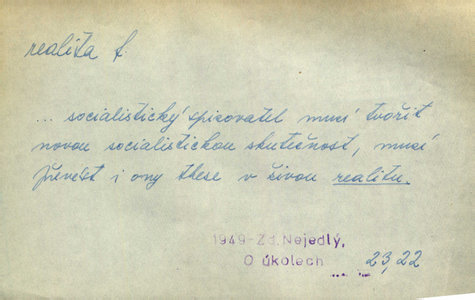 realita f.
... socialistický spisovatel musí tvořit
novou socialistickou skutečnost, musí
převést i ony these v živou realitu.
1949-Zd. Nejedlý,
O úkolech 23,22